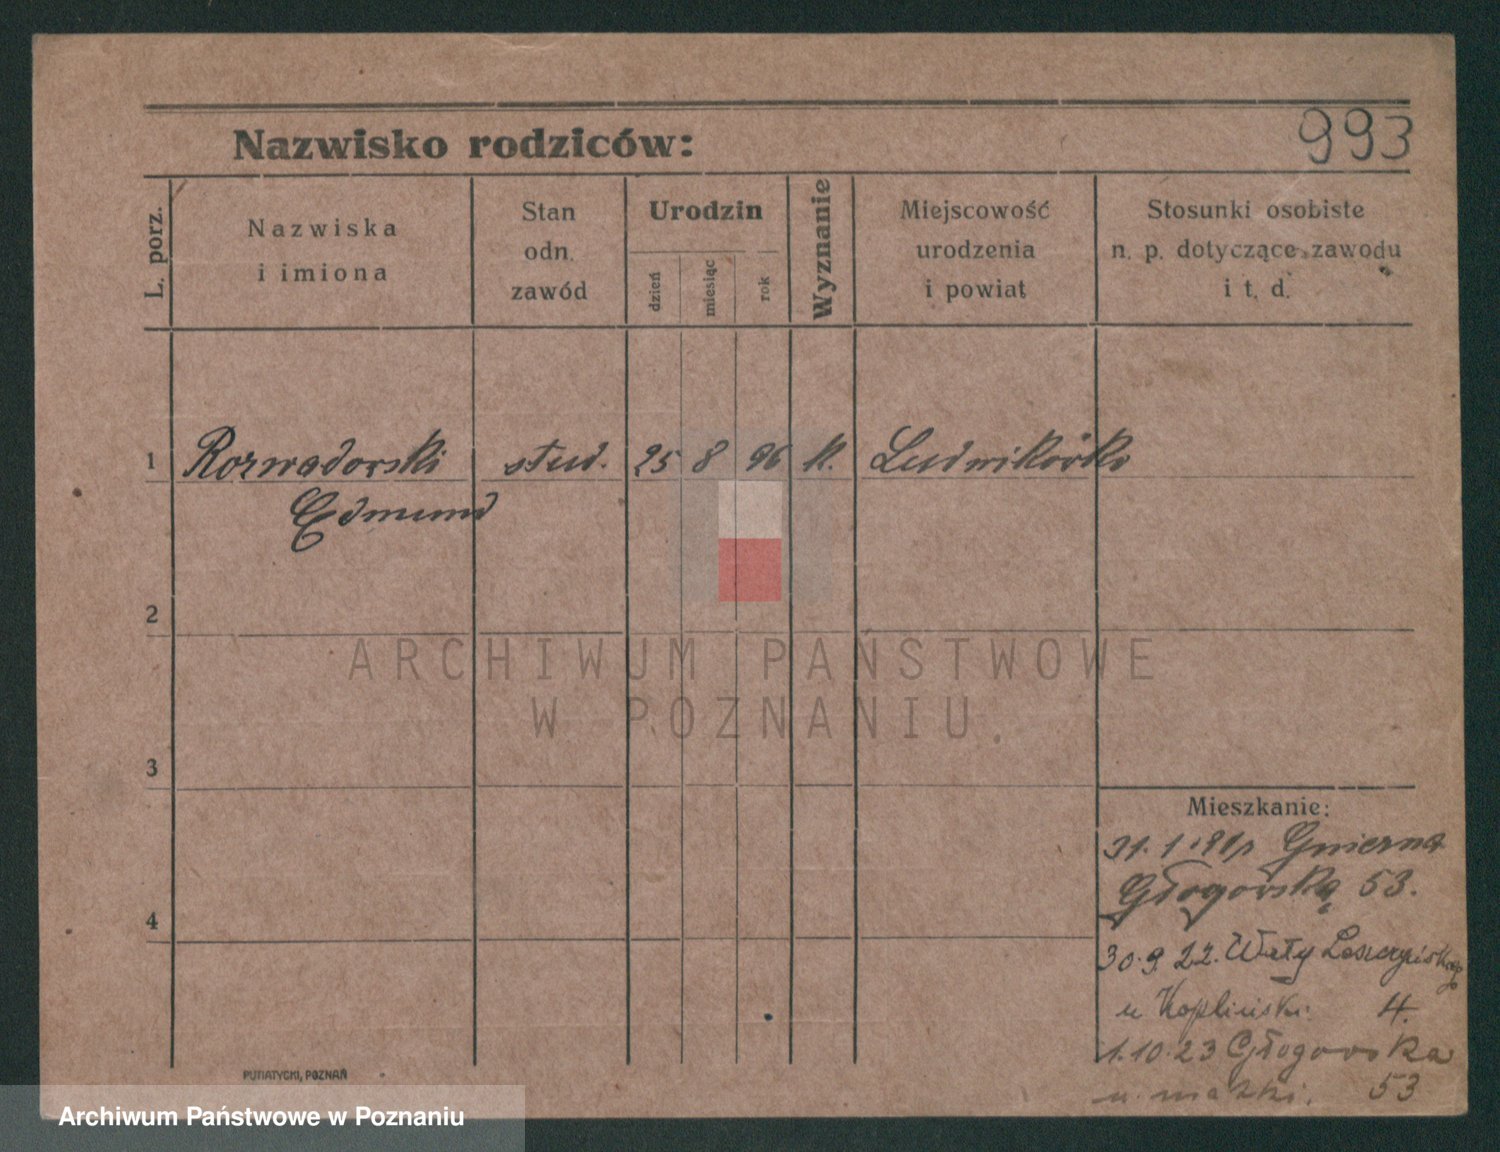 993
Nazwisko rodziców:
L. porz.
Nazwiska
i imiona
Stan
odn.
zawód
Urodzin
dzień
miesiąc
rok
Wyznanie
Miejscowość
urodzenia
i powiat
Stosunki osobiste
n. p. dotyczące zawodu
i t. d.
1 Rozwadowski stud. 25 8 96 k. Ludwikówko
Edmund
2
ARCHIWUM PAŃSTWOWE
W POZNANIU.
3
Mieszkanie:
31. 1.
Głogowska 53.
4
30.9.22. Wały Leszczyńskiego
u 4.
1.10.23 Głogowska
u matki. 53
PUTIATYCKI, POZNAŃ
Archiwum Państwowe w Poznaniu